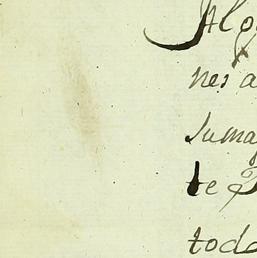 Algo
nes a
suma
te
todo